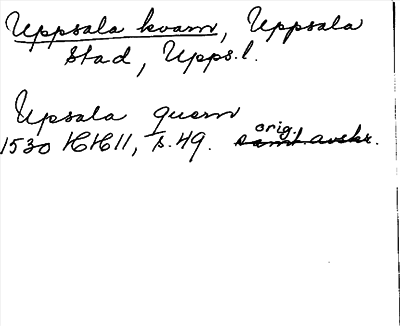 Uppsala kvarn, Uppsala
Stad, Upps.l.
Upsala quern
orig.
1530 HH 11, s. 49. samt. avskr.